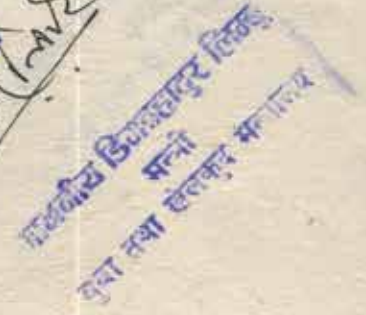 माननीय डिल्लीबहादुर लिम्बु
मन्त्री
युवा तथा खेलकुद मन्त्रालय